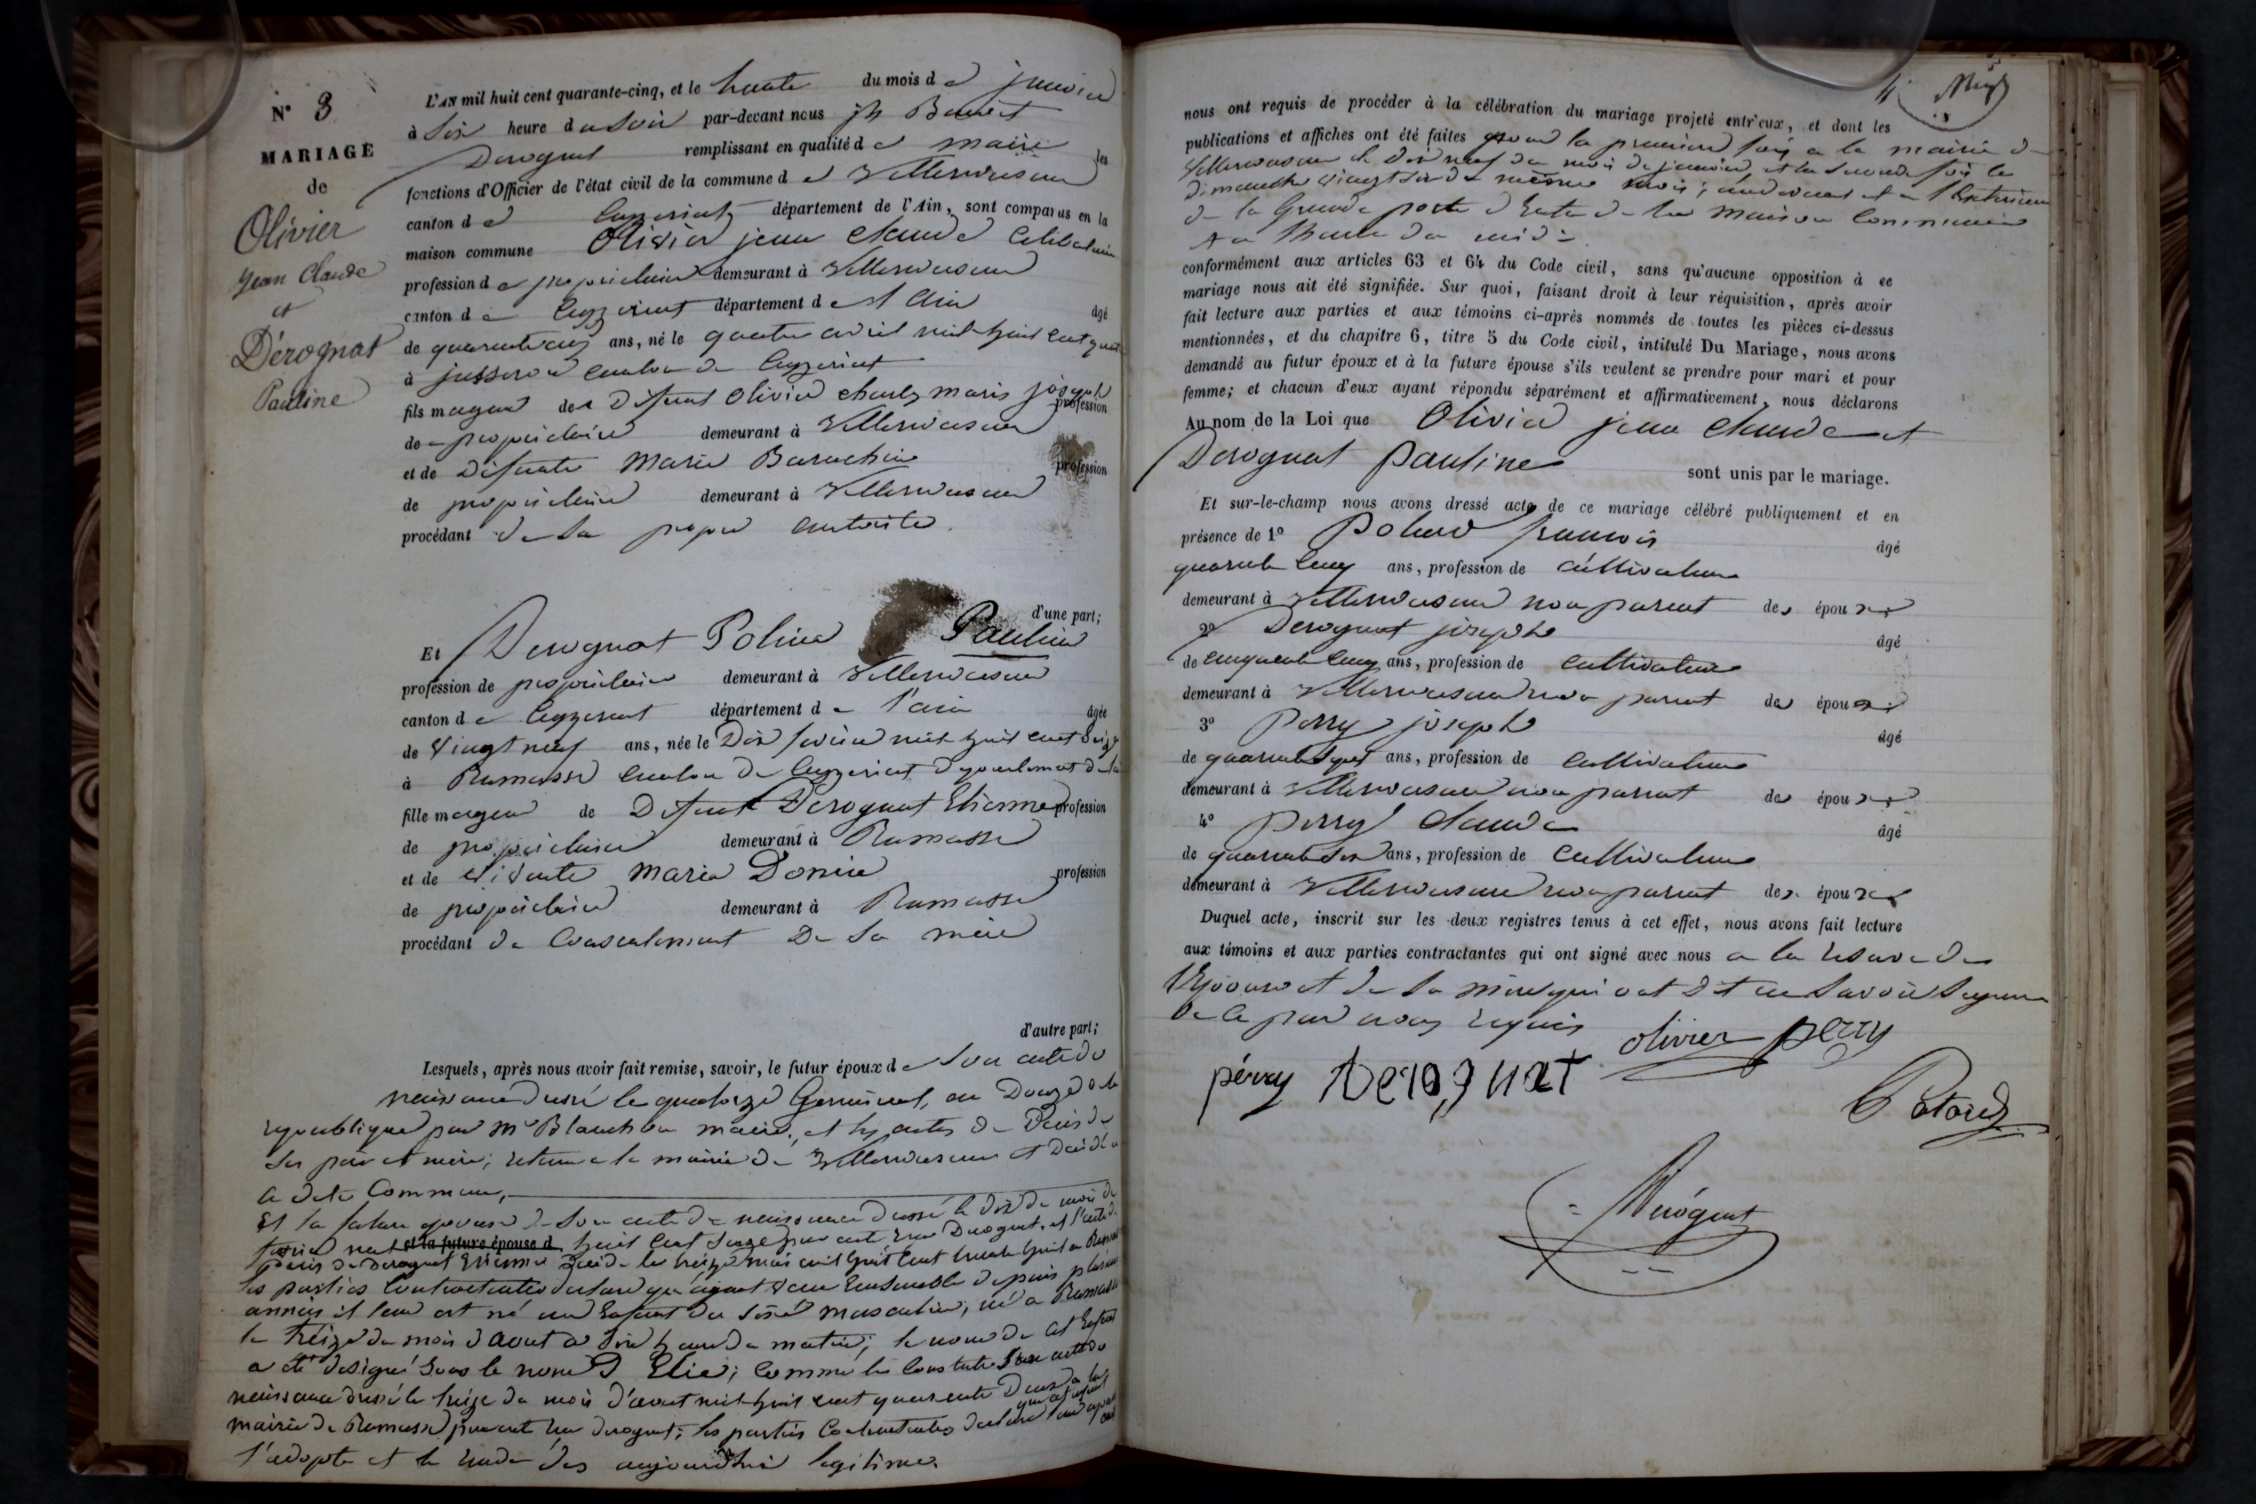 N° 3
MARIAGE
de
Olivier
Jean Claude
et
Dérognat
Pauline
L'AN mil huit cent quarante-cinq, et le trente du mois de janvier
à six heure du soir par-devant nous
Derognat remplissant en qualité de maire les
fonctions d'Officier de l'état civil de la commune de Villereversure
canton de Ceyzeriat département de l'Ain, sont comparus en la
maison commune Olivier jean Claude Celibataire
profession de propriétaire demeurant à Villereversure
canton de Ceyzeriat département de l'Ain âgé
de quarante ans, né le quatre avril mil huit cent quatre
à canton de Ceyzeriat
fils mageur de Defunt Olivier charles marie joseph profession
de propriétaire demeurant à Villereversure
et de Defunte Marie profession
de propriétaire demeurant à Villereversure
procédant de sa propre autorité
d'une part;
Et Derognat Poline Pauline
profession de propriétaire demeurant à Villereversure
canton de Ceyzeriat département de l'ain âgée
de vingt neuf ans, née le Dix fevrier mil huit cent seize
à Ramasse canton de Ceyzeriat departement de l'ain
fille mageur de Defunt Derognat Etienne profession
de propriétaire demeurant à Ramasse
et de vivante Marie Donin profession
de propriétaire demeurant à Ramasse
procédant du Consentement De sa mère
d'autre part;
Lesquels, après nous avoir fait remise, savoir, le futur époux de son acte de
naissance dressé le quatorze Germinal, an Douze de la
republique par Mr Blanchon maire, et les actes de Décès de
ses père et mère; retenu a la mairie de Villereversure et
la dite Commune,
Et la future epouse de son acte de naissance dressé le dix du mois de
fevrier mil et la future épouse d huit cent seize par Derognat, et l'acte de
Décès de derognat Etienne le treize mai mil huit cent trente huit a Ramasse
les parties Contractantes declare qu'ayant vecu Ensemble depuis plusieurs
années il leur est né un Enfant du sexe masculin, né a Ramasse
le treize du mois d'aout a six heure du matin; le nom de cet Enfant
a été designé sous le nom d'Elie; comme le constate son acte de
naissance dressé le treize du mois d'aout mil huit cent quarante Deux a la
mairie de Ramasse par derognat; les parties Contractantes declare
l'adopte et le rende des aujourd'hui legitime.
4
nous ont requis de procéder à la célébration du mariage projeté entr'eux, et dont les
publications et affiches ont été faites pour la première fois a la mairie de
Villereversure le dix neuf du mois de janvier et la seconde fois le
dimanche vingt six du même mois; au devant et a l'Exterieur
de la Grande porte d'Entrée de la Maison Commune
a l'heure de midi
conformément aux articles 63 et 64 du Code civil, sans qu'aucune opposition à ce
mariage nous ait été signifiée. Sur quoi, faisant droit à leur réquisition, après avoir
fait lecture aux parties et aux témoins ci-après nommés de toutes les pièces ci-dessus
mentionnées, et du chapitre 6, titre 5 du Code civil, intitulé Du Mariage, nous avons
demandé au futur époux et à la future épouse s'ils veulent se prendre pour mari et pour
femme; et chacun d'eux ayant répondu séparément et affirmativement, nous déclarons
Au nom de la Loi que Olivier jean Claude et
Derognat Pauline sont unis par le mariage.
Et sur-le-champ nous avons dressé acte de ce mariage célébré publiquement et en
présence de 1° Potard francois âgé
quarante cinq ans, profession de cultivateur
demeurant à Villereversure non parent des époux
2° Derognat joseph âgé
de cinquante cinq ans, profession de cultivateur
demeurant à Villereversure non parent des époux
3° Perry joseph âgé
de quarante sept ans, profession de cultivateur
demeurant à Villereversure non parent des époux
4° Perry Claude âgé
de quarante six ans, profession de cultivateur
demeurant à Villereversure non parent des époux
Duquel acte, inscrit sur les deux registres tenus à cet effet, nous avons fait lecture
aux témoins et aux parties contractantes qui ont signé avec nous a la reserve de
l'Epouse et de sa mère qui ont dit ne savoir signer
de ce par nous requis
olivier perry
pérray Derognat
Potard
Dérognat